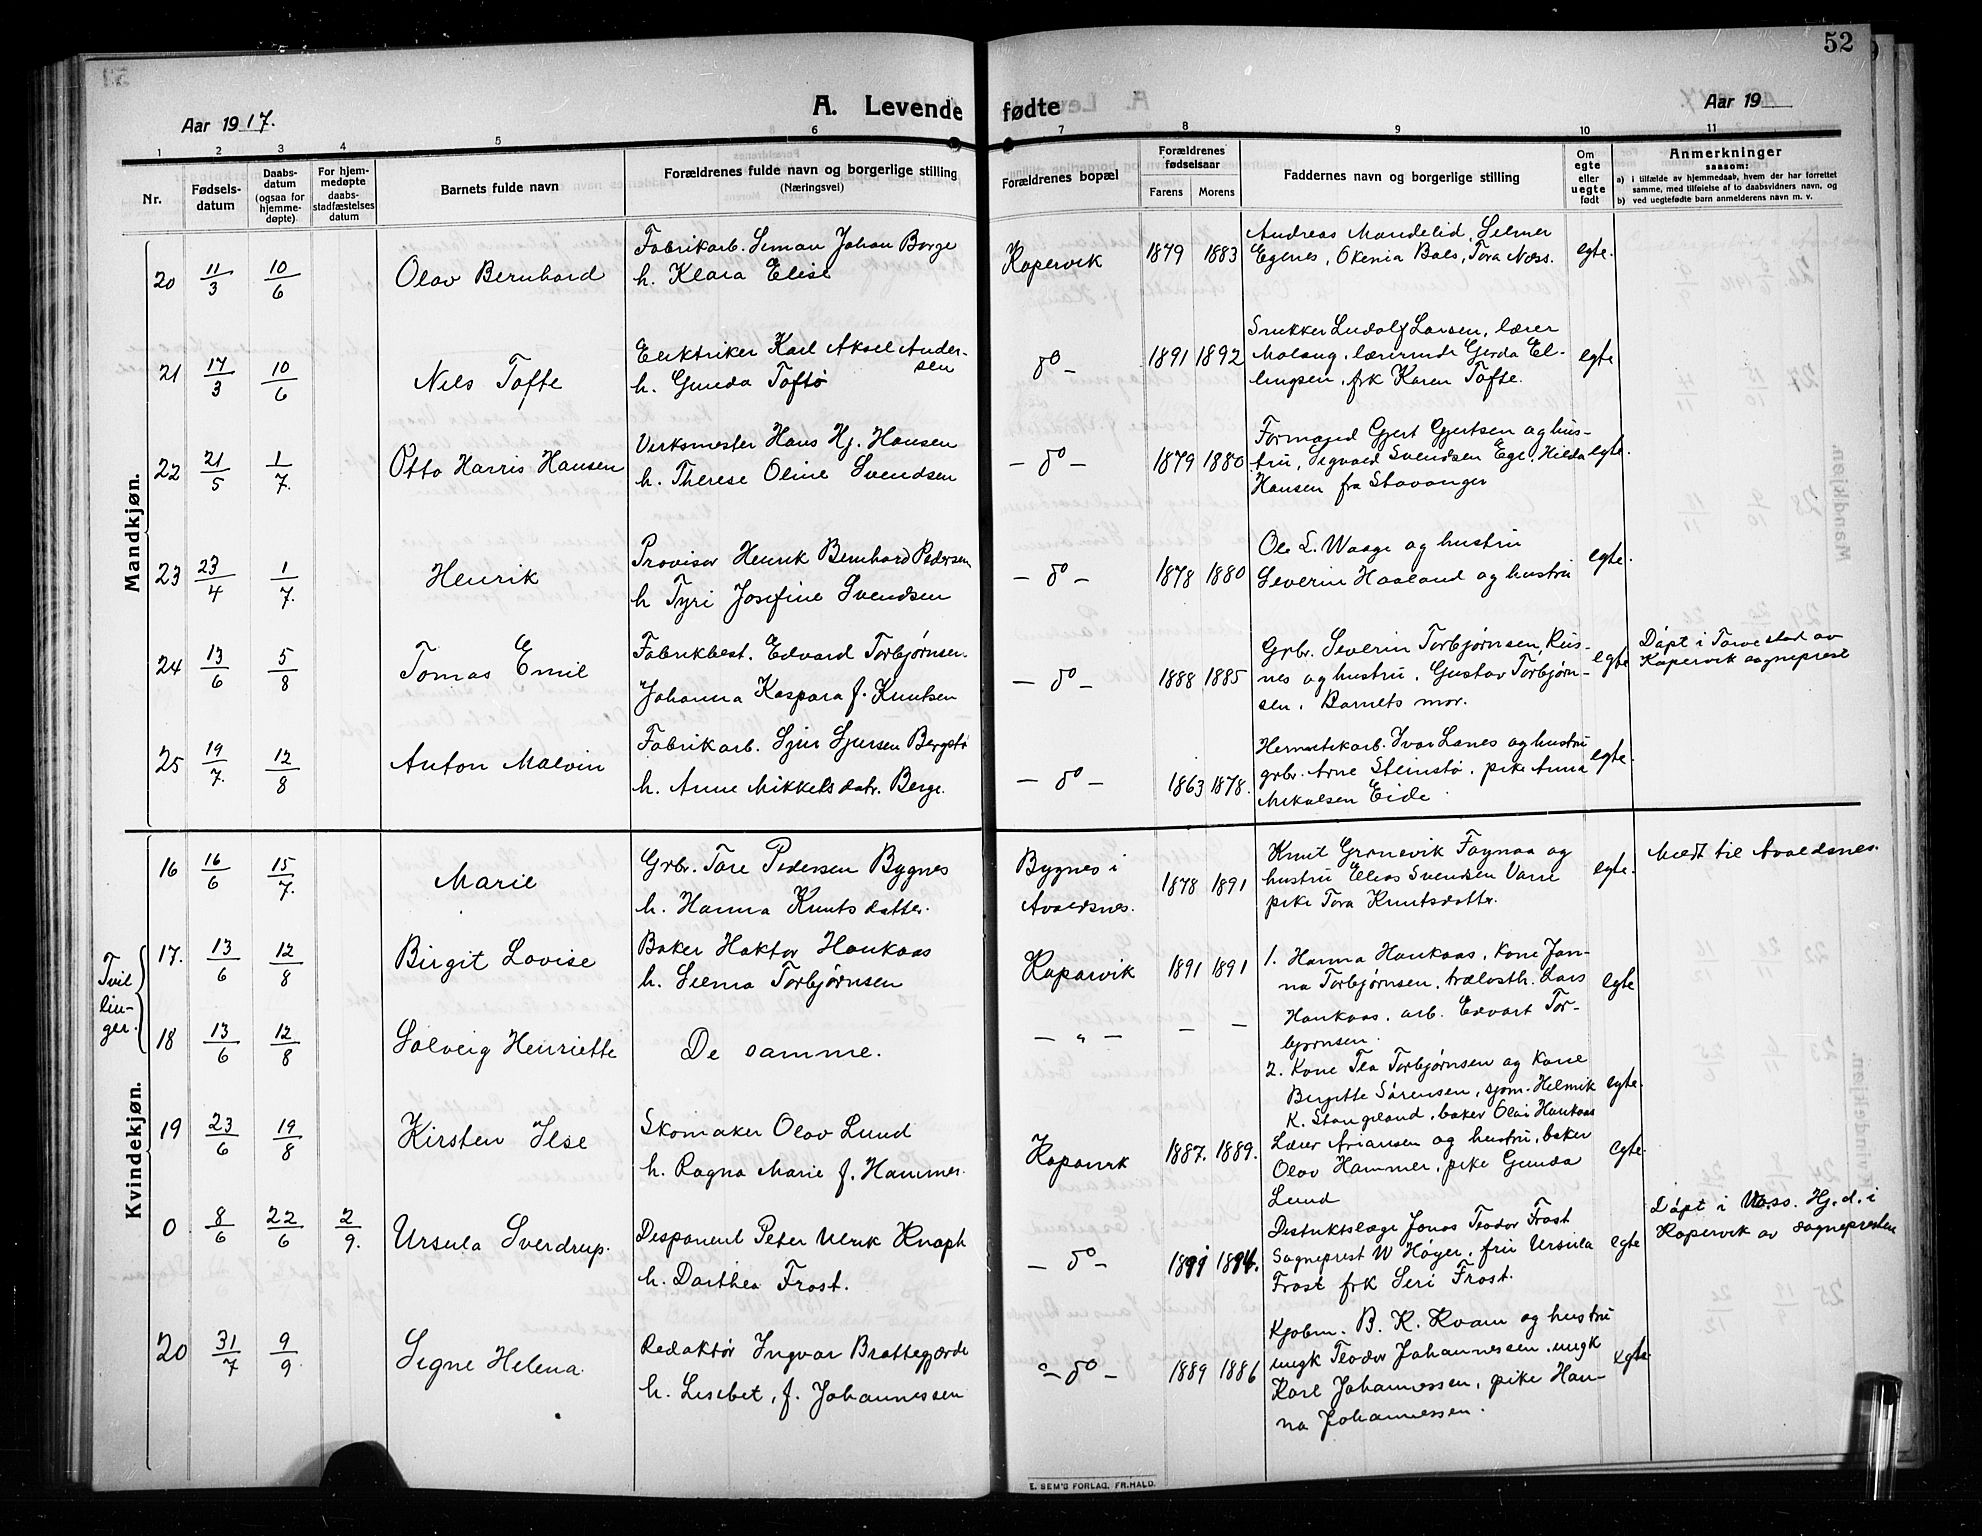 52
A. Levende fødte
Aar 1917.
Aar 19
1 2 3 4 5 6 7 8 9 10 11
Nr.
Fødsels-
datum
Daabs-
datum
(ogsaa for
hjemme-
døpte)
For hjem-
medøpte
daabs-
stadfæstelses
datum
Barnets fulde navn
Forældrenes fulde navn og borgerlige stilling
(Næringsvei)
Forældrenes bopæl
Forældrenes
fødselsaar
Farens Morens
Faddernes navn og borgerlige stilling
Om
egte
eller
uegte
født
Anmerkninger
saasom:
a) i tilfælde av hjemmedaab, hvem der har forrettet
samme, med tilføielse af to daabsvidners navn, og
b) ved uegtefødte barn anmelderens navn m. v.
Mandkjøn.
20 11/3 10/6 Olav Bernhard
Fabrikarb. Simon Johan Borge
h. Klara Elise
Kopervik 1879 1883
Andreas Mandelid, Selmer
Egenes, Okenia Boes, Tora Næss.
egte.
21 17/3 10/6 Nils Tofte
Elektriker Karl Aksel Ander-
sen
h. Gunda Toftø
do 1891 1892
Snekker Ludolf Larsen, lærer
Molaug, lærerinde Gerda El-
lingsen, frk Karen Tofte.
egte
22 21/5 1/7. Otto Harris Hansen
Verksmester Hans Hj. Hansen
h. Therese Oline Svendsen
- do - 1879 1880
Formand Gjert Gjertsen og hus-
tru, Sigvald Svendsen Ege, Hilda
Hansen fra Stavanger
egte.
23 23/4 1/7. Henrik
Provisor Henrik Bernhard Pedersen
h Tyri Josefine Svendsen
- do - 1878 1880
Ole L. Waage og hustru
Severin Haaland og hustru
egte.
24 13/6 5/8 Tomas Emil
Fabrikbest. Edvard Torbjørnsen
Johanna Kaspara f. Knutsen
- do - 1888 1885
Grbr. Severin Torbjørnsen, Røs-
nes og hustru, Gustav Torbjørn-
sen, Barnets mor.
egte
Døpt i Torvestad av
Kopervik sogneprest
25 19/7. 12/8 Anton Malvin
Fabrikarb. Sjur Sjursen Bergstø
h. Anne Mikkelsdatr. Berge.
- do - 1863 1878.
Hermetikarb. Ivar Lanes og hustru
grbr. Arne Steinstø, pike Anna
Mikalsen Eide.
egte.
Kvindekjøn.
16 16/6 15/7. Marie
Grbr. Tore Pedersen Bygnes
h. Hanna Knutsdatter.
Bygnes i
Avaldsnes.
1878 1891
Knut Grønevik Føynaa og
hustru Elias Svendsen Varne
pike Tora Knutsdatter.
egte.
Meldt til Avaldsnes.
Tvil
lin-
ger.
17. 13/6 12/8 Birgit Lovise
Baker Haktor Haukaas
h. Selma Torbjørnsen
Kopervik 1891 1891
1. Hanna Haukaas, kone Jan-
na Torbjørnsen, trælasth. Lars
Haukaas, arb. Edvart Tor-
bjørnsen.
egte
18 13/6 12/8 Solveig Henriette
De samme.
- „ - - -
2. Kone Tea Torbjørnsen og Kone
Birgitte Sørensen, sjøm. Helmik
K. Stangeland, baker Olai Haukaas
egte.
19 23/6 19/8 Kirsten Ilse
Skomaker Olav Lund
h. Ragna Marie f. Hammer.
Kopervik 1887. 1889.
Lærer Ariansen og hustru, baker
Olav Hammer, pike Gunda
Lund
egte.
0 8/6 22/6 2/9. Ursula Sverdrup.
Disponent Peter Ulrik Knaph
h. Dorthea Frost.
- do - 1891 1894.
Distriktslæge Jonas Teodor Frost
Sogneprest W Høyer, fru Ursula
Frost frk Siri Frost.
egte
Døpt i Voss. Hj. d. i
Kopervik av sognepresten
20 31/7 9/9 Signe Helena.
Redaktør Ingvar Brattegjerde
h. Lisebet, f. Johannessen
- do - 1889 1886
Kjøbm. B. K. Kvam og hustru
ungk Teodor Johannessen, ungk
Karl Johannessen, pike Han-
na Johannessen.
egte
E. SEM'S FORLAG, FR.HALD.